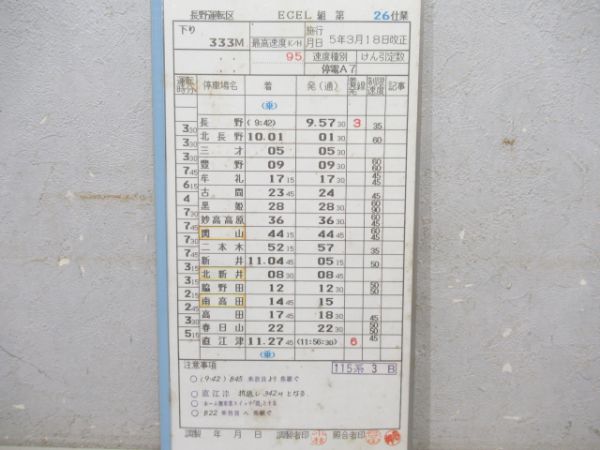 長野運転区 ECEL組 第 26仕業
下り 333M 最高速度K/H 施行月日 5年3月18日改正
95 速度種別 けん引定数
停電A7
運転時分 停車場名 着 発(通) 着線 制限速度 記事
(乗)
長野 (9:42) 9.57 30 3 35
3 30 北長野 10.01 01 30 60
3 30 三才 05 05 30
3 30 豊野 09 09 30 60
7 45 牟礼 17 15 17 30 45
6 15 古間 23 45 24 45
4 黒姫 28 28 30
7 30 妙高高原 36 36 30
7 45 関山 44 15 44 45 45
7 30 二本木 52 15 57 35
7 45 新井 11.04 45 05 15 50
3 15 北新井 08 30 08 45
3 15 脇野田 12 12 30 50
2 15 南高田 14 45 15
2 45 高田 17 45 18 30 45
3 30 春日山 22 22 30
5 15 直江津 11.27 45 (11:56:30) 6
(乗)
注意事項 115系 3 B
○ (9:42) 845
○ 直江津 342M となる
○ 822
調製 年 月 日 調製者印 照合者印